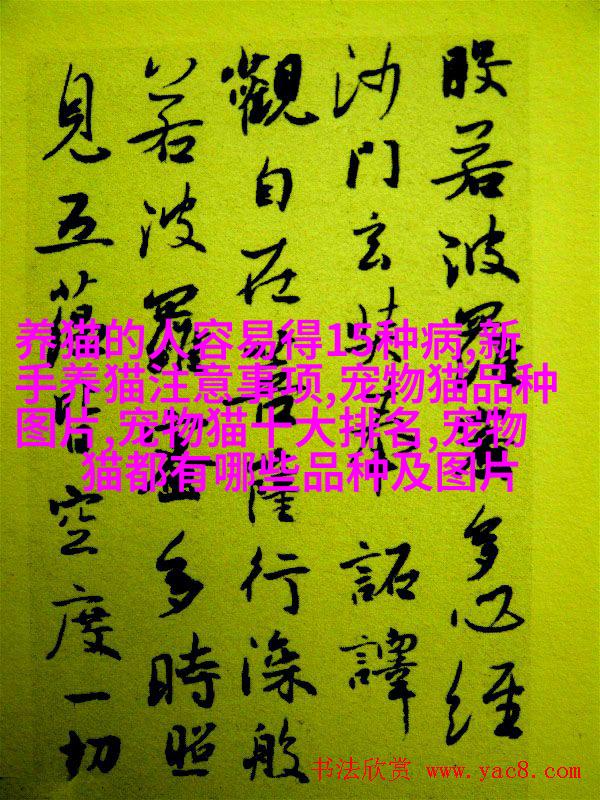 般若波羅蜜多心經
沙門玄奘奉 詔譯
觀自在菩薩行深般
若波羅蜜多時照
見五蘊皆空度一切
养猫的人容易得15种病,新
手养猫注意事项,宠物猫品种
图片,宠物猫十大排名,宠物
猫都有哪些品种及图片
书法欣赏 www.yac8.com